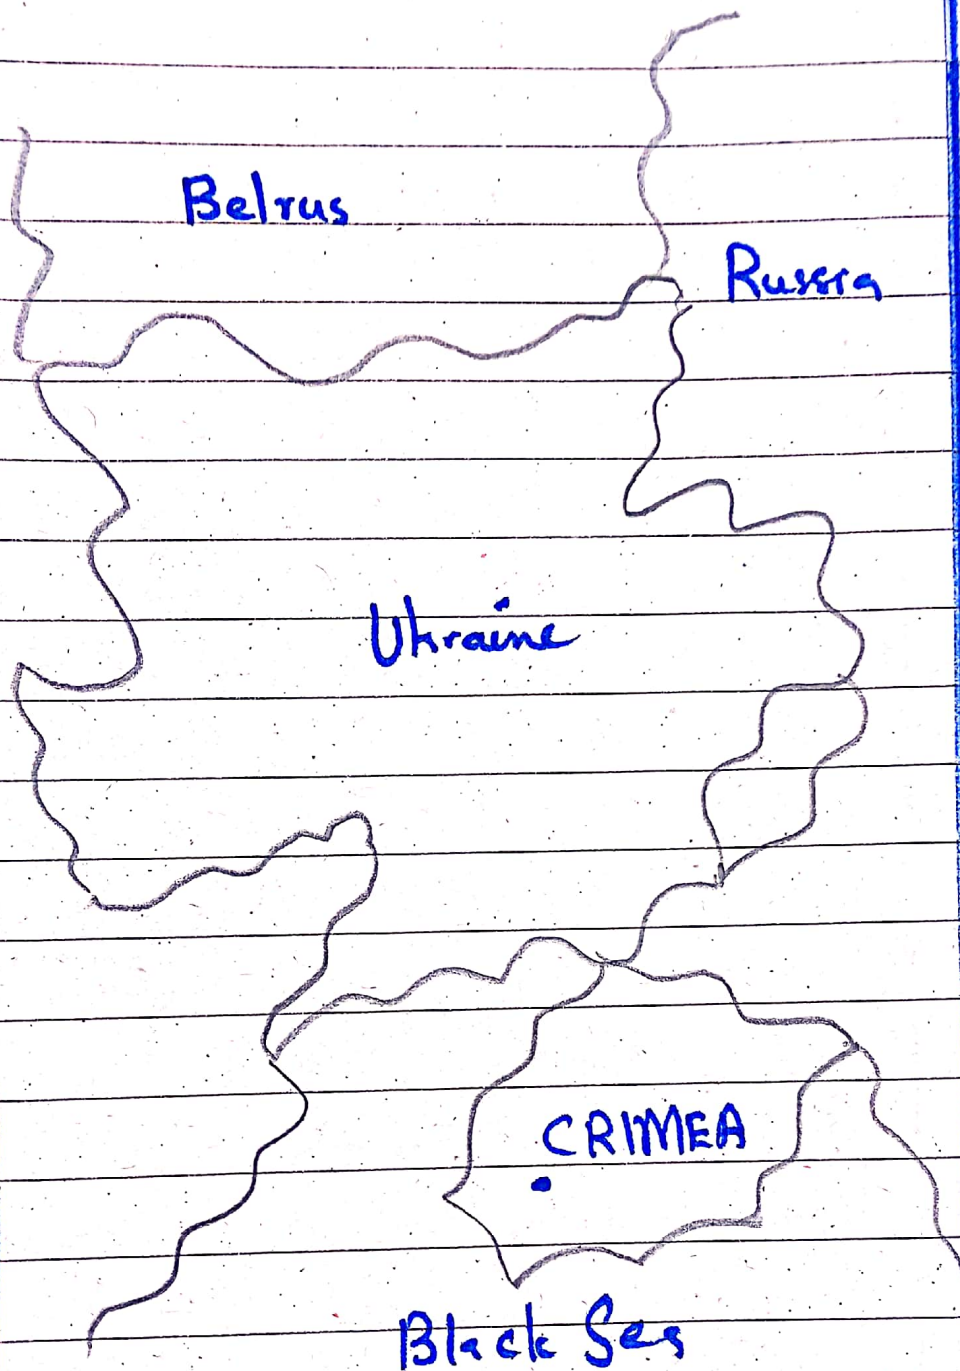 Belrus
Russia
Ukraine
CRIMEA
Black Sea